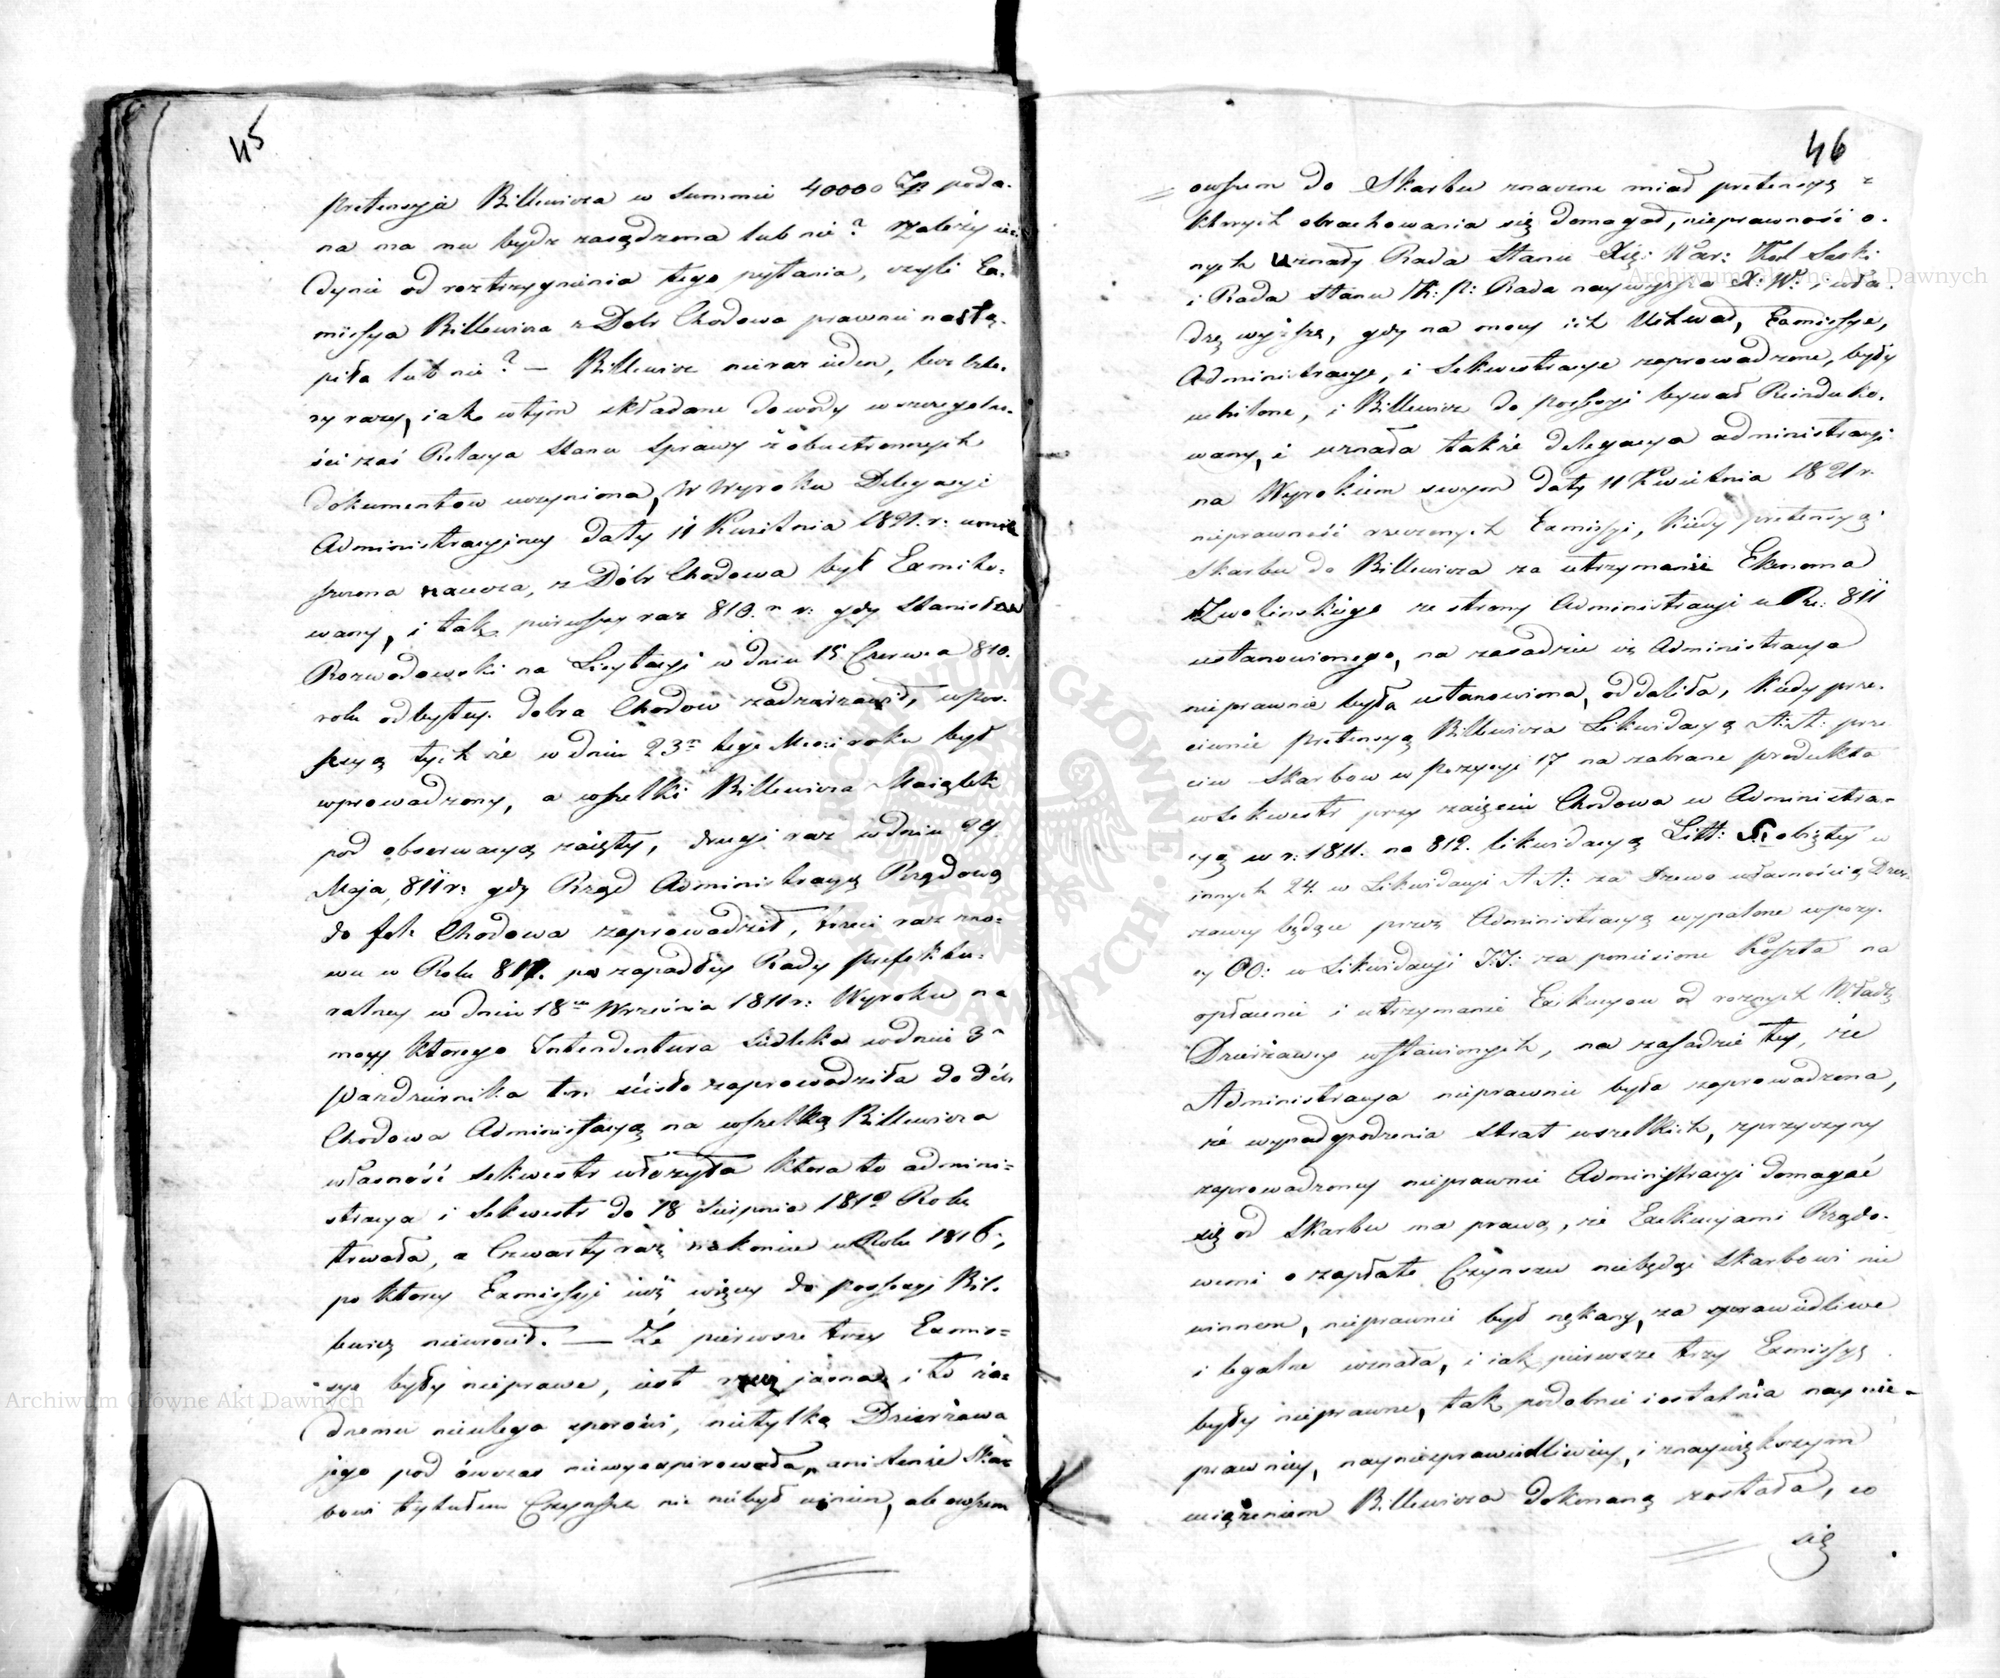 45
pretensyia Billewicza w summie 40000 Zp poda-
na ma mu bydz zasądzona lub nie? Zależy ie-
dynie od roztrzygnienia tego pytania, czyli Ex-
missya Billewicza z Dobr Chodowa prawnie nastą-
piła lub nie? — Billewicz nieraz ieden, lecz czte-
ry razy, iak wtym składane dowody wszczegolno-
ści zaś Relacya Stanu Sprawy z obustronnych
dokumentow uczyniona, w Wyroku Delegacyi
Administracyiney daty 11 Kwietnia 1821. r: umie
szczona naucza, z Dóbr Chodowa był Exmito-
wany, i tak pierwszy raz 810. r: gdy Stanisław
Rozwadowski na Licytacyi w dniu 15 Czerwca 810.
roku odbytey dobra Chodow zadzierżawił, wpos-
sesyą tychże w dniu 23 tego Mca i roku był
wprowadzony, a wszelki Billewicza Maiątek
pod obserwacyą zaięty, drugi raz w dniu 29
Maja 811 r: gdy Rząd Administracyą Rządową
do folw Chodowa zaprowadził, trzeci raz zno-
wu w Roku 811. po zapadłym Rady Prefektu-
ralney w dniu 18 Września 1811 r: Wyroku na
mocy ktorego Intendentura Siedlecka w dniu 3
Pazdziernika t. r. ścisło zaprowadziła do dóbr
Chodowa Administracyą na wszelką Billewicza
własność sekwestr włożyła ktora to admini-
stracya i Sekwestr do 18 Sierpnia 1812 Roku
trwała, a Czwarty raz nakoniec w Roku 1816;
po ktorey Exmissyi iuż więcey do possesyi Bil-
lewicz niewrocił. — Że pierwsze trzy Exmis-
sye były nieprawe, iest rzeczą jasną i to ża-
dnemu nieulega sporowi, nietylko Dzierżawa
jego pod ówczas niewyexpirowała, ani tenże Skar-
bowi tytułem Czynszu nic niebył winien, ale owszem
46
owszem do Skarbu znaczne miał pretensyą
ktorych obrachowania się domagał, nieprawność o-
nych uznały Rada Stanu Xię: War: Krol Saski
i Rada Stanu K: P: Rada naywyższa X: W: i wła-
dzę wyższą, gdy na mocy ich Uchwał, Exmissye,
Administracye, i Sekwestracye zaprowadzone, były
uchilone, i Billewicz do possesyi bywał Reinduko-
wany, i uznała także delegacya administracyi
na Wyrokiem swym daty 11 Kwietnia 1821 r.
nieprawność rzeczonych Exmissyi, kiedy pretensyą
Skarbu do Billewicza za utrzymanie Ekonoma
Zwolinskiego ze strony Administracyi w R: 811
ustanowionego, na zasadzie iż Administracya
nieprawnie była ustanowiona, oddaliła, kiedy prze-
ciwnie pretensyą Billewicza Likwidacyą A.A: prze
ciw Skarbow w pozycyi 17 na zabrane produkta
w sekwestr przy zaięciu Chodowa w Administra-
cyą w r: 1811. na 812. likwidacyą Litt: S. obiętey w
innych 24 w Likwidacyi A A: za Drzewo własnością Dzier-
żawcy będące przez Administracyą wypalone w pozy-
cy 60: w Likwidacyi I.I: za poniesione koszta na
opłacenie i utrzymanie Exekucyow od roznych Władz
Dzierżawcy wstawionych, na zasadzie tey, że
Administracya nieprawnie była zaprowadzona,
że wynadgrodzenia strat wszelkich, zprzyczyny
zaprowadzoney nieprawnie Administracyi domagać
się od Skarbu ma prawą, że Exekucyami Rządo-
wemi o zapłatę Czynszu niebędąc Skarbowi nic
winnem, nieprawnie był nękany, za sprawiedliwe
i legalne uznała, i iak pierwsze trzy Exmissyą
były nieprawne, tak podobnie i ostatnia naynie-
prawniey, nayniesprawiedliwiey, i znaywiększym
uciążeniem Billewicza dokonaną została, co
się